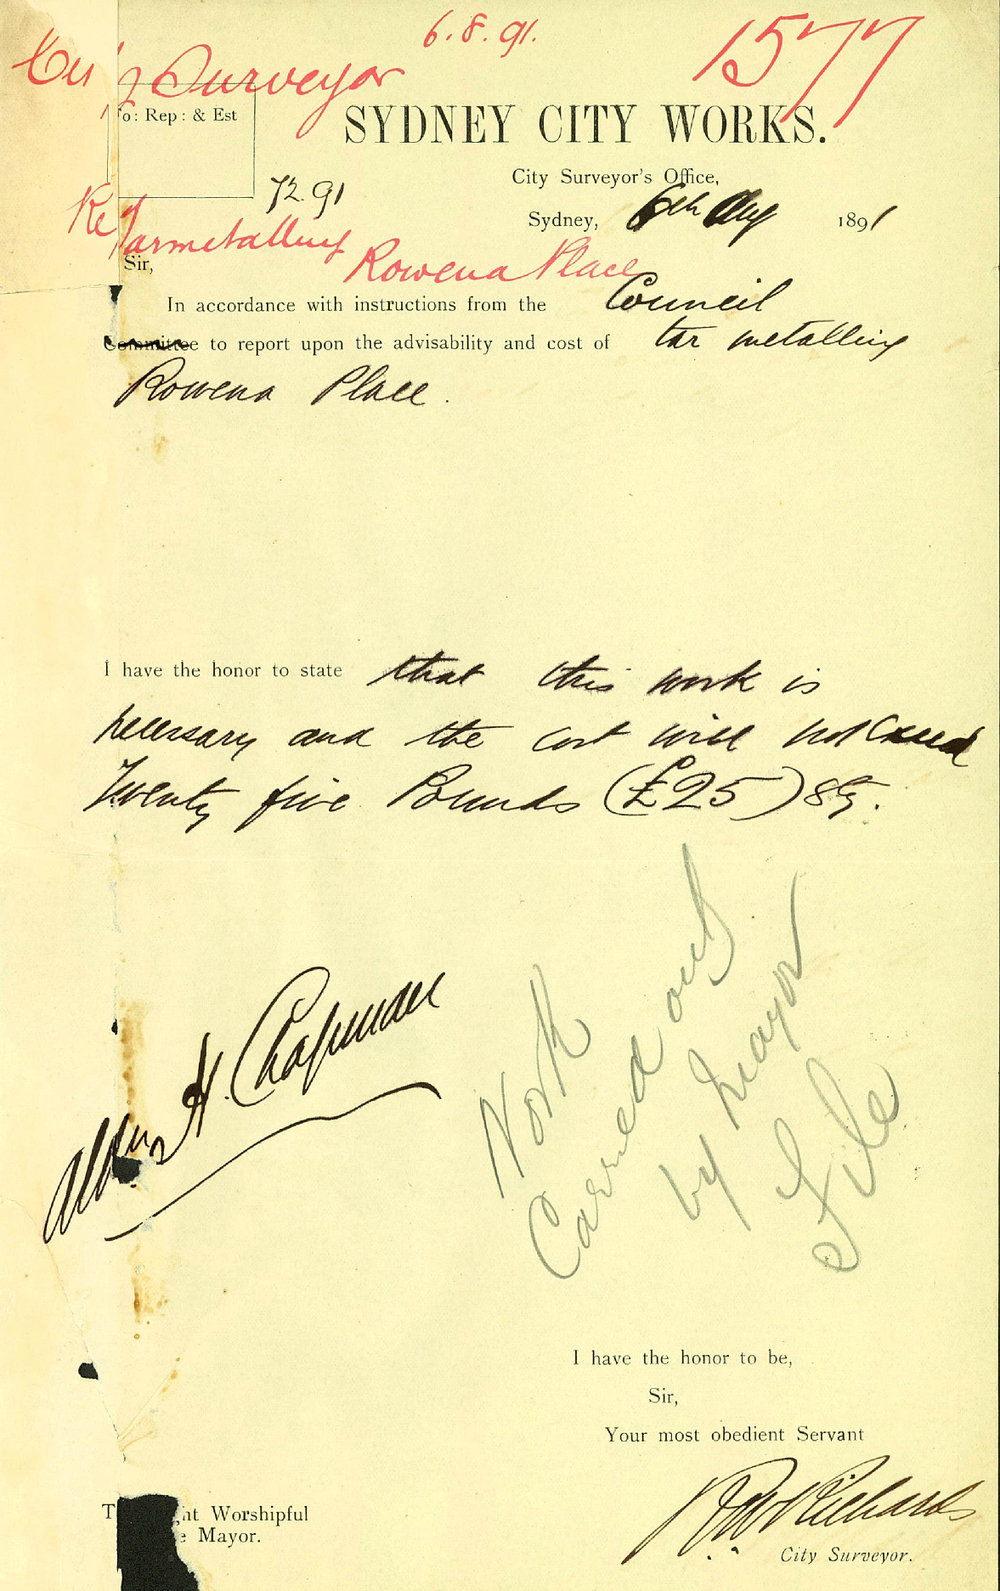 6.8.91.
1577
City Surveyor
No: Rep: & Est
72.91
SYDNEY CITY WORKS.
City Surveyor's Office,
Sydney, 6th Aug 1891
Re Tarmetalling
Rowena Place
Sir,
In accordance with instructions from the Council
Committee to report upon the advisability and cost of tar metalling
Rowena Place.
I have the honor to state that this work is
necessary and the cost will not exceed
Twenty five Pounds (£25)
Alder H. Chapman
Work
Carried out
by Mayor
File
I have the honor to be,
Sir,
Your most obedient Servant
Richards
City Surveyor.
ht Worshipful
e Mayor.